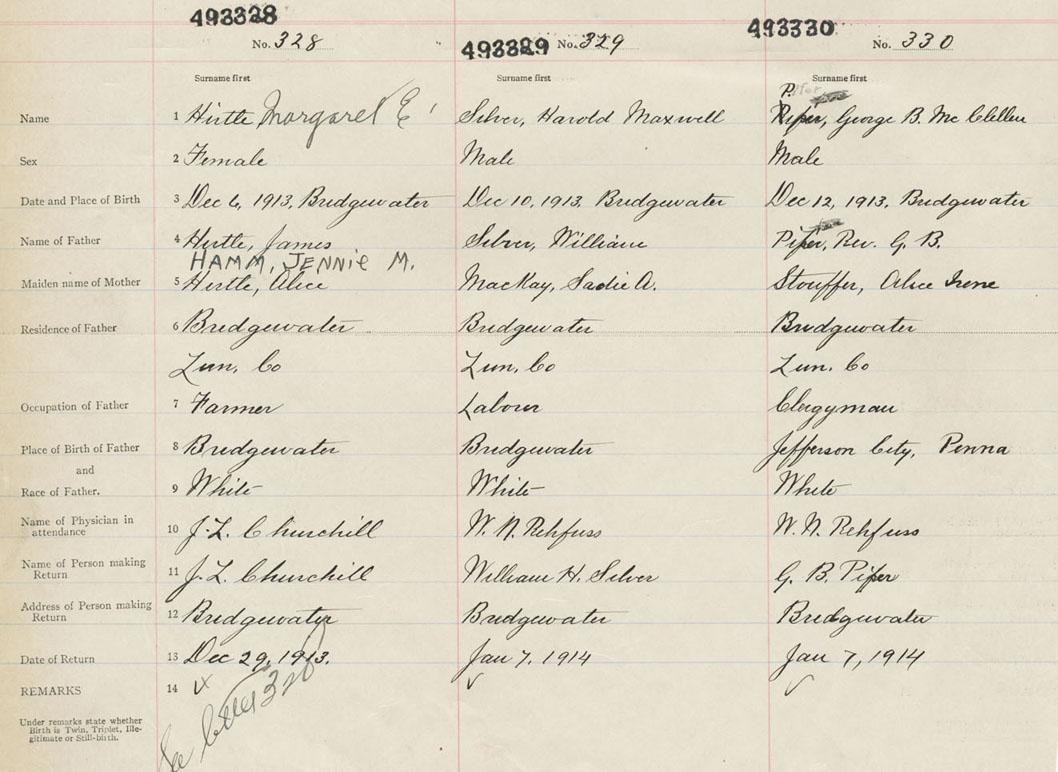 493328
493329
493330
No. 328
No. 329
No. 330
Surname first
Surname first
Surname first
Name
1 Hirtle Margaret E
Silver, Harold Maxwell
Pifer, George B. McClellen
Sex
2 Female
Male
Male
Date and Place of Birth
3 Dec 6, 1913, Bridgewater
Dec 10, 1913, Bridgewater
Dec 12, 1913, Bridgewater
Name of Father
4 Hirtle, James
Silver, William
Pifer, Rev. G. B.
HAMM, JENNIE M.
Maiden name of Mother
5 Hirtle, Alice
MacKay, Sadie A.
Stouffer, Alice Irene
Residence of Father
6 Bridgewater
Bridgewater
Bridgewater
Lun. Co
Lun. Co
Lun. Co
Occupation of Father
7 Farmer
Labourer
Clergyman
Place of Birth of Father
8 Bridgewater
Bridgewater
Jefferson City, Penna
and
Race of Father.
9 White
White
White
Name of Physician in
attendance
10 J. L. Churchill
W. N. Rehfuss
W. N. Rehfuss
Name of Person making
Return
11 J. L. Churchill
William H. Silver
G. B. Pifer
Address of Person making
Return
12 Bridgewater
Bridgewater
Bridgewater
Date of Return
13 Dec 29, 1913.
Jan 7, 1914
Jan 7, 1914
REMARKS
14
See letter 320
Under remarks state whether
Birth is Twin, Triplet, Ille-
gitimate or Still-birth.